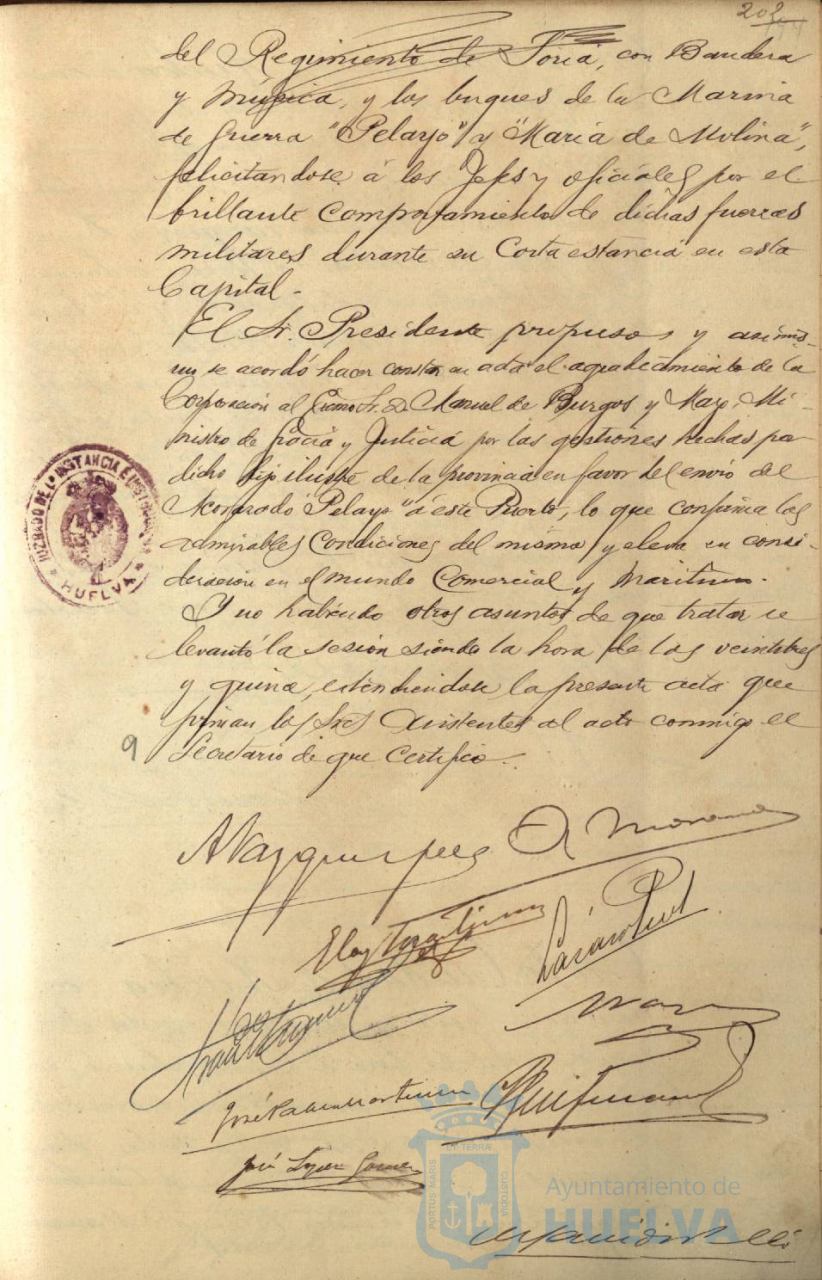 202
del Regimiento de Soria, con Bandera
y Música, y los buques de la Marina
de Guerra "Pelayo" y "María de Molina",
felicitandose á los Jefes y oficiales por el
brillante comportamiento de dichas fuerzas
militares durante su corta estancia en esta
Capital.-
El Sr. Presidente propuso y asimis-
mo se acordó hacer constar en acta el agradecimiento de la
Corporación al Excmo. Sr. D. Manuel de Burgos y Mazo, Mi-
nistro de Gracia y Justicia por las gestiones hechas por
dicho hijo ilustre de la provincia en favor del envio del
Acorazado "Pelayo" á este Puerto, lo que confirma las
admirables condiciones del mismo y eleva su consi-
deración en el mundo Comercial y Maritimo.
Y no habiendo otros asuntos de que tratar se
levantó la sesión siendo la hora de las veintitres
y quince, extendiendose la presente acta que
firman los Sres Asistentes al acto conmigo el
Secretario de que certifico.
9
JUZGADO DE 1ª INSTANCIA E INSTRUCCIÓN
HUELVA
A Vazquez
José López Gómez
PORTUS MARIS ET TERRAE CUSTODIA
Ayuntamiento de
HUELVA